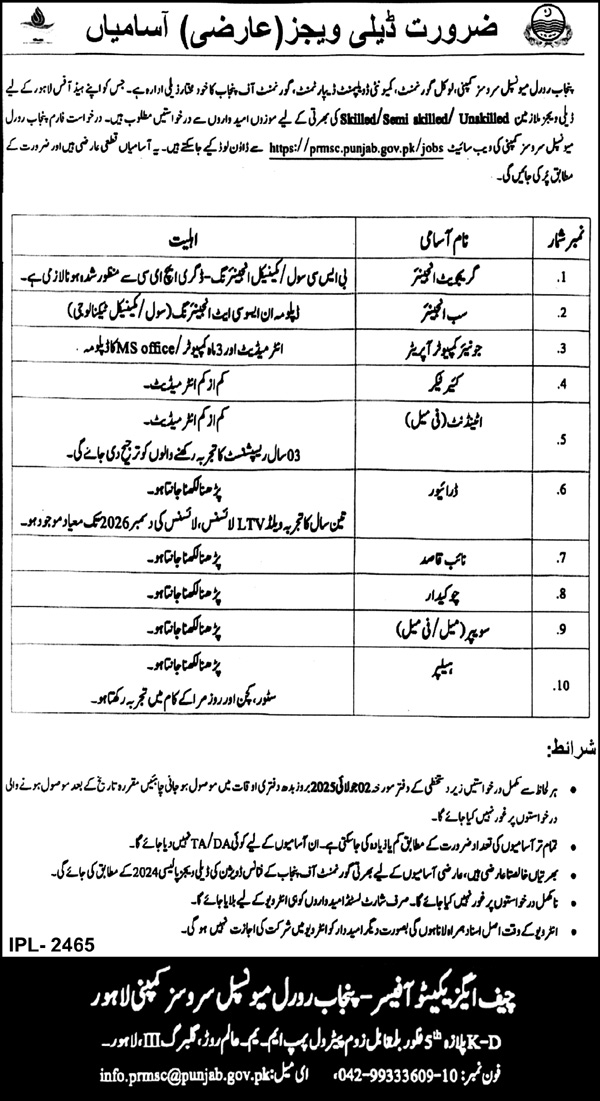 ضرورت ڈیلی ویجز (عارضی) آسامیاں
پنجاب رورل میونسپل سروسز کمپنی، لوکل گورنمنٹ، کمیونٹی ڈویلپمنٹ ڈیپارٹمنٹ، گورنمنٹ آف پنجاب کا خود مختار ذیلی ادارہ ہے۔ جس کو اپنے ہیڈ آفس لاہور کے لیے
ڈیلی ویجز ملازمین Skilled/Semi skilled/ Unskilled کی بھرتی کے لیے موزوں امیدواروں سے درخواستیں مطلوب ہیں۔ درخواست فارم پنجاب رورل
میونسپل سروسز کمپنی کی ویب سائیٹ https://prmsc.punjab.gov.pk/jobs سے ڈاؤن لوڈ کیے جاسکتے ہیں۔ یہ آسامیاں قطعی عارضی ہیں اور ضرورت کے
مطابق پُر کی جائیں گی۔
نمبر شمار نام آسامی اہلیت
1. گریجویٹ انجینئر بی ایس سی سول/کمینیکل انجینئرنگ-ڈگری ایچ ای سی سے منظور شدہ ہونا لازمی ہے۔
2. سب انجینئر ڈپلومہ ان ایسوسی ایٹ انجینئرنگ (سول/کمینیکل ٹیکنالوجی)
3. جونیئر کمپیوٹر آپریٹر انٹرمیڈیٹ اور 3 ماہ کمپیوٹر/MS office کا ڈپلومہ
4. کئیر ٹیکر کم از کم انٹرمیڈیٹ۔
5. اٹینڈنٹ (فی میل) کم از کم انٹرمیڈیٹ۔
03 سال ریسپشنسٹ کا تجربہ رکھنے والوں کو ترجیح دی جائے گی۔
6. ڈرائیور پڑھنا لکھنا جانتا ہو۔
تین سال کا تجربہ ویلڈ LTV لائسنس، لائسنس کی دسمبر 2026 تک معیاد موجود ہو۔
7. نائب قاصد پڑھنا لکھنا جانتا ہو۔
8. چوکیدار پڑھنا لکھنا جانتا ہو۔
9. سویپر (میل/فی میل) پڑھنا لکھنا جانتا ہو۔
10. ہیلپر پڑھنا لکھنا جانتا ہو۔
سٹور، کچن اور روزمرا کے کام میں تجربہ رکھتا ہو۔
شرائط:
• ہر لحاظ سے مکمل درخواستیں زیر دستخطی کے دفتر مورخہ 02 جولائی 2025 بروز بدھ دفتری اوقات میں موصول ہو جانی چاہئیں مقررہ تاریخ کے بعد موصول ہونے والی
درخواستوں پر غور نہیں کیا جائے گا۔
• تمام تر آسامیوں کی تعداد ضرورت کے مطابق کم یا زیادہ کی جاسکتی ہے۔ ان آسامیوں کے لیے کوئی TA/DA نہیں دیا جائے گا۔
• بھرتیاں خالصتا عارضی ہیں، عارضی آسامیوں کے لیے بھرتی گورنمنٹ آف پنجاب کے فنانس ڈویژن کی ڈیلی ویجز پالیسی 2024 کے مطابق کی جائے گی۔
• نامکمل درخواستوں پر غور نہیں کیا جائے گا۔ صرف شارٹ لسٹڈ امیدواروں کو ہی انٹرویو کے لیے بلایا جائے گا۔
• انٹرویو کے وقت اصل اسناد ہمراہ لانا ہوں گی بصورت دیگر امیدوار کو انٹرویو میں شرکت کی اجازت نہیں ہوگی۔
IPL- 2465
چیف ایگزیکیٹو آفیسر - پنجاب رورل میونسپل سروسز کمپنی لاہور
K-D پلازہ 5th فلور بلمقابل زوم پیٹرول پمپ ایم۔ایم۔عالم روڑ، گلبرگ III، لاہور۔
فون نمبر: 042-99333609-10، ای میل: info.prmsc@punjab.gov.pk